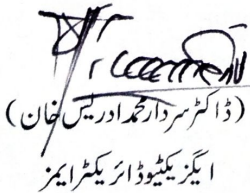 (ڈاکٹر سردار محمد ادریس خان)
ایگزیکٹیو ڈائریکٹر ایمز